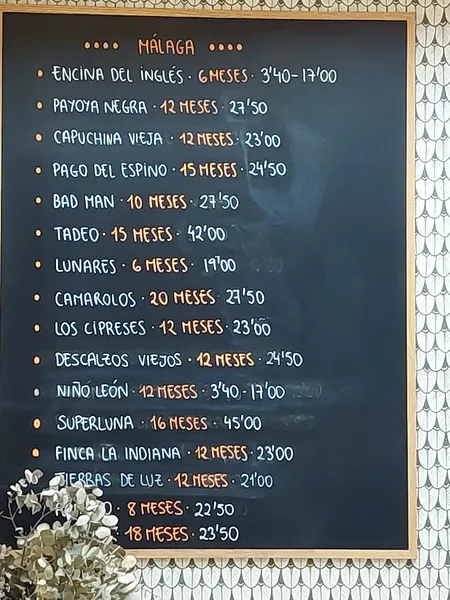 MÁLAGA
ENCINA DEL INGLÉS · 6 MESES · 3'40-17'00
PAYOYA NEGRA · 12 MESES · 27'50
CAPUCHINA VIEJA · 12 MESES · 23'00
PAGO DEL ESPINO · 15 MESES · 24'50
BAD MAN · 10 MESES · 27'50
TADEO · 15 MESES · 42'00
LUNARES · 6 MESES · 19'00
CAMAROLOS · 20 MESES · 27'50
LOS CIPRESES · 12 MESES · 23'00
DESCALZOS VIEJOS · 12 MESES · 24'50
NIÑO LEÓN · 12 MESES · 3'40-17'00
SUPERLUNA · 16 MESES · 45'00
FINCA LA INDIANA · 12 MESES · 23'00
TIERRAS DE LUZ · 12 MESES · 21'00
· 8 MESES · 22'50
· 18 MESES · 23'50